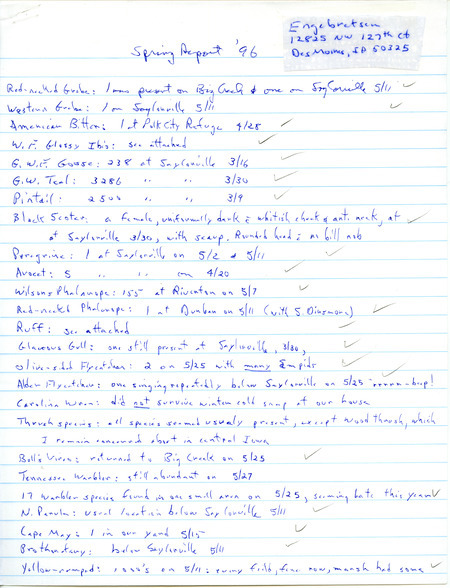 Engebretsen
12835 NW 127th Ct
Des Moines, IA 50325
Spring Report '96
Red-necked Grebe: 1 was present on Big Creek & one on Saylorville 5/11
Western Grebe: 1 on Saylorville 5/11
American Bittern: 1 at Polk City Refuge 4/28
W. F. Glossy Ibis: see attached
G.W.F. Goose: 238 at Saylorville 3/16
G.W. Teal: 3286 " " 3/30
Pintail: 2500 " " 3/9
Black Scoter: a female, uniformly dark & whitish cheek & ant. neck, at
at Saylorville 3/30, with scaup. Rounded head & no bill nob
Peregrine: 1 at Saylorville on 5/2 & 5/11
Avocet: 5 " " on 4/20
Wilsons Phalarope: 155 at Riverton on 5/7
Red-necked Phalarope: 1 at Dunbar on 5/11 (with S. Dinsmore)
Ruff: see attached
Glaucous Gull: one still present at Saylorville, 3/30,
Olive-sided Flycatcher: 2 on 5/25 with many Empids
Alder Flycatcher: one singing repeatedly below Saylorville on 5/25 "rrrrr-beep!
Carolina Wren: did not survive winter cold snap at our house
Thrush species: all species seemed usualy present, except Wood thrush, which
I remain concerned about in central Iowa
Bell's Vireo: returned to Big Creek on 5/25
Tennessee Warbler: still abundant on 5/27
17 warbler species found in one small area on 5/25, seeming late this year
N. Parula: usual location below Saylorville 5/11
Cape May: 1 in our yard 5/15
Prothonotary: below Saylorville 5/11
Yellow-rumped: 1000's on 5/11: every field, fine row, marsh had some